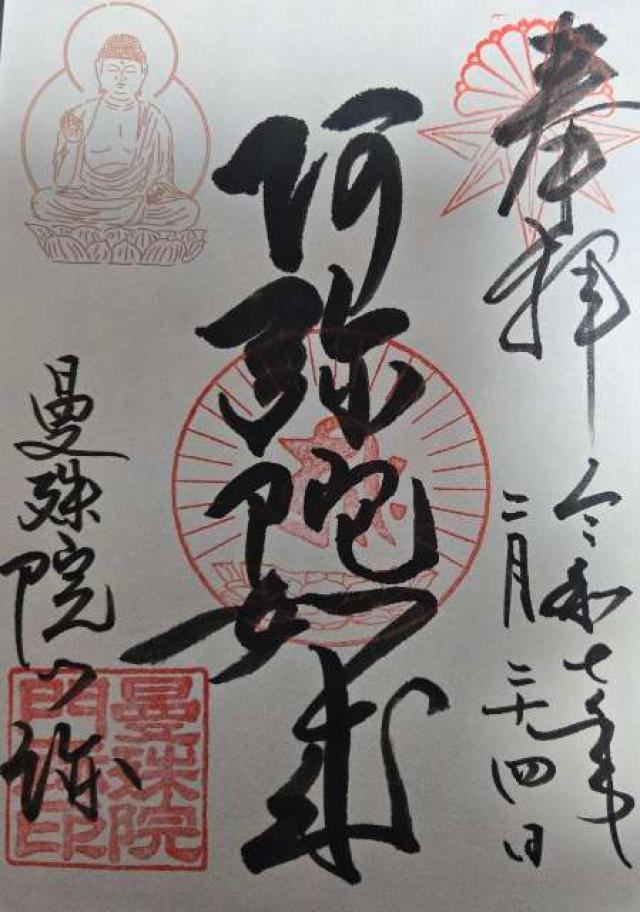 奉拝
令和七年
二月二十四日
阿弥陀如来
曼殊院門跡
曼殊院
門跡印